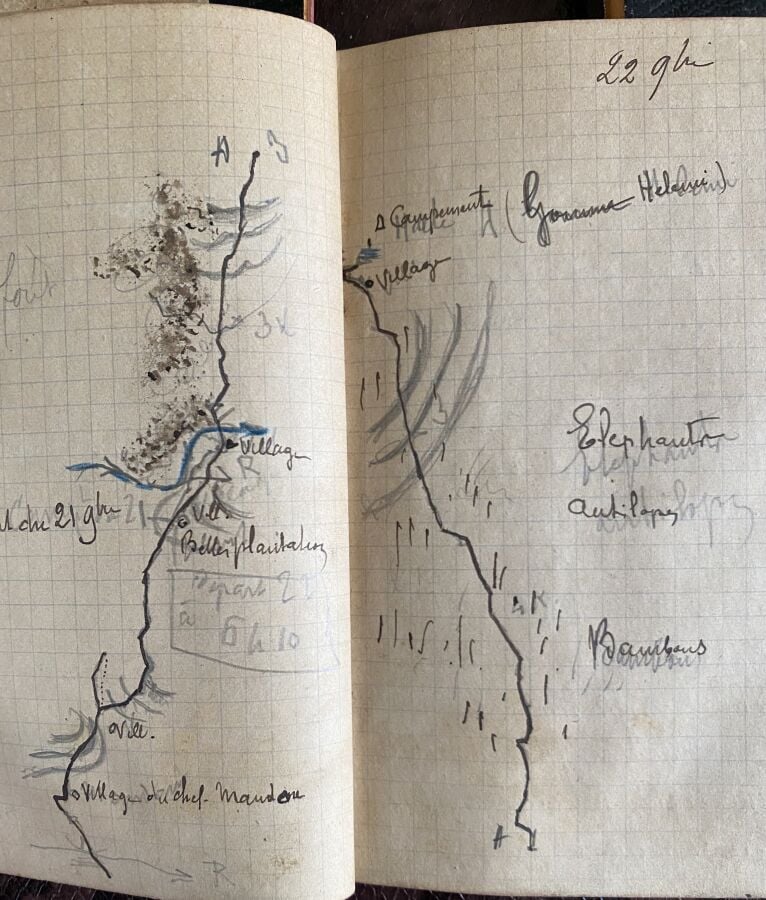 A B
3 K
Village
R
du 21 9bre
Vill.
Belles plantations
Départ 22
à
6 h 10
Vill.
Village du chef Mandou
R
22 9bre
Campement
Village
Elephants
Antilopes
4 K
Bambous
A